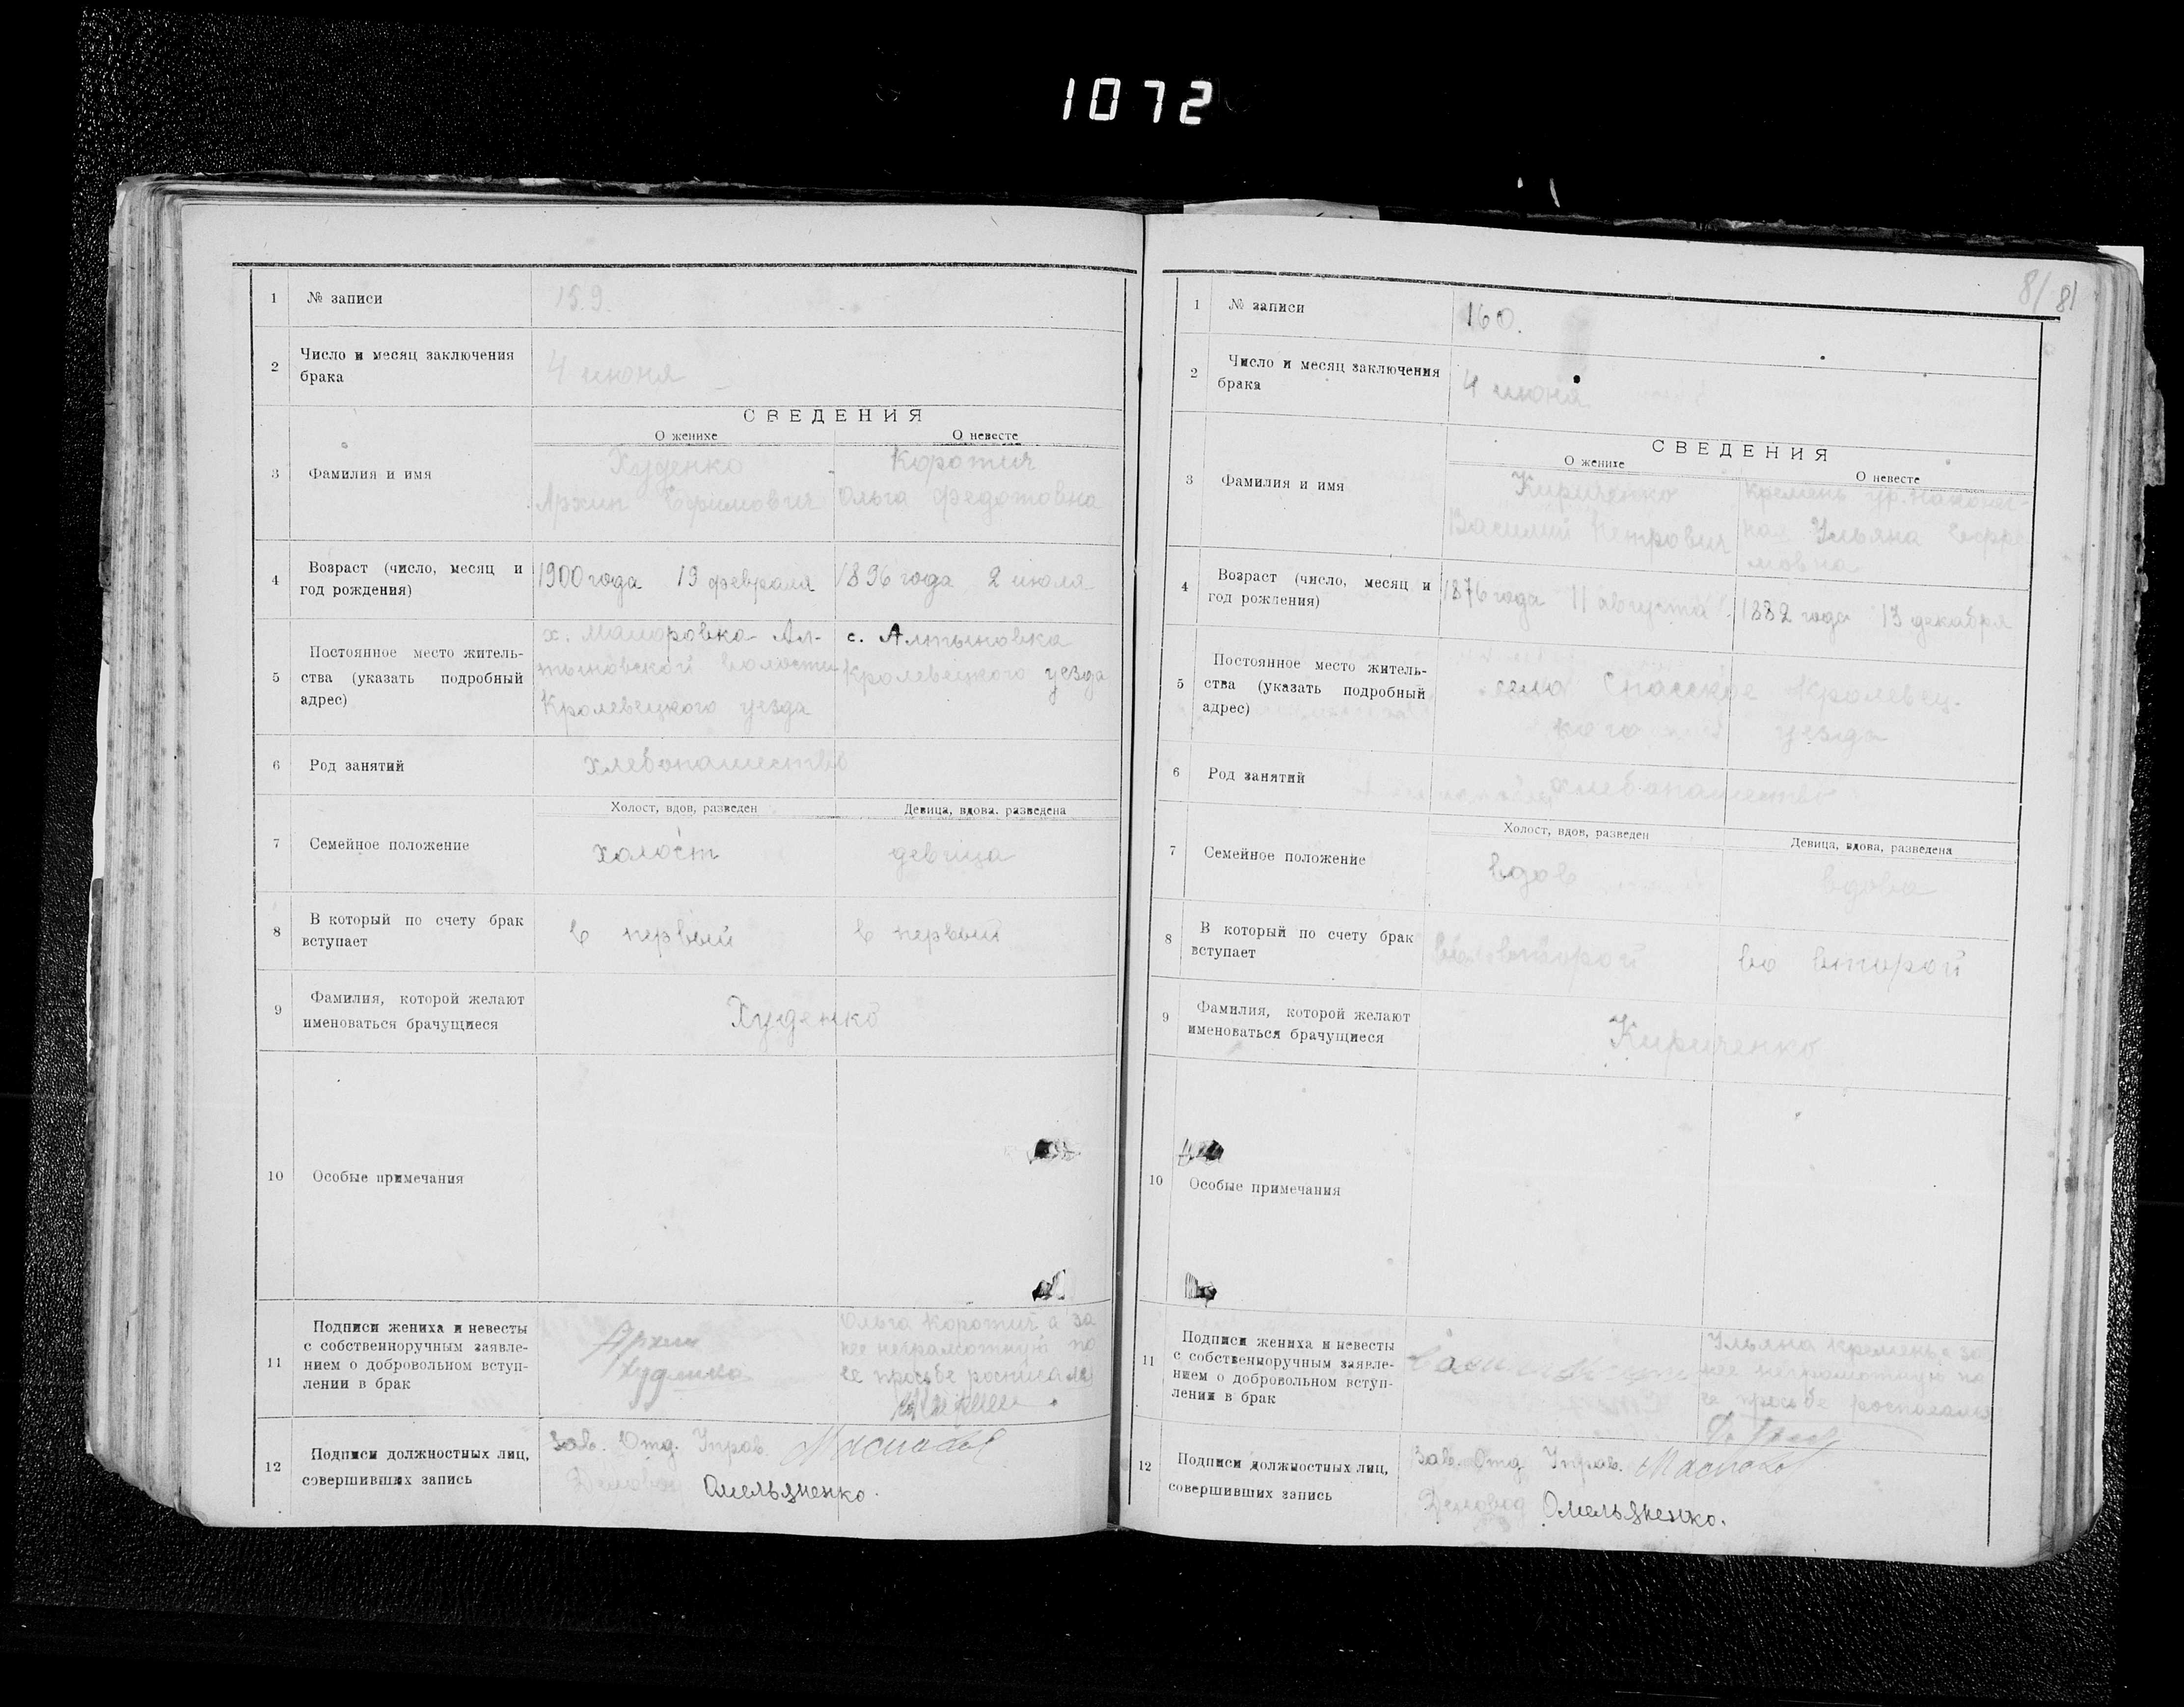 1072
1 № записи 159.
2 Число и месяц заключения
брака 4 июня
СВЕДЕНИЯ
О женихе О невесте
3 Фамилия и имя
Худенко Коротич
Архип Ефимович Ольга Федотовна
4 Возраст (число, месяц и
год рождения)
1900 года 19 февраля 1896 года 2 июля
5 Постоянное место житель-
ства (указать подробный
адрес)
Ал- с. Алтыновка
тыновской волости Кролевецкого уезда
Кролевецкого уезда
6 Род занятий хлебопашество
Холост, вдов, разведен Девица, вдова. разведена
7 Семейное положение холост девица
8 В который по счету брак
вступает
в первый в первый
9 Фамилия, которой желают
именоваться брачущиеся
Худенко
10 Особые примечания
11 Подписи жениха и невесты
с собственноручным заявле-
нием о добровольном вступ-
лении в брак
Архип
Худенко
Ольга Коротич а за
нее неграмотную по
ее просьбе
12 Подписи должностных лиц,
совершивших запись
Зав. Отд. Управ.
Деловод Омельяненко.
81 81
1 № записи 160.
2 Число и месяц заключения
брака 4 июня
СВЕДЕНИЯ
О женихе О невесте
3 Фамилия и имя
Кириченко Кремень
Василий Петрович Ульяна
4 Возраст (число, месяц и
год рождения)
1876 года 11 августа 1882 года 13 декабря
5 Постоянное место житель-
ства (указать подробный
адрес)
село Спасское Кролевец-
кого уезда
6 Род занятий хлебопашество
Холост, вдов, разведен Девица, вдова, разведена
7 Семейное положение вдов вдова
8 В который по счету брак
вступает
во второй во второй
9 Фамилия, которой желают
именоваться брачущиеся
Кириченко
10 Особые примечания
11 Подписи жениха и невесты
с собственноручным заявле-
нием о добровольном вступ-
лении в брак
Ульяна Кремень а за
нее неграмотную по
ее просьбе
12 Подписи должностных лиц,
совершивших запись
Зав. Отд Управ.
Деловод Омельяненко.